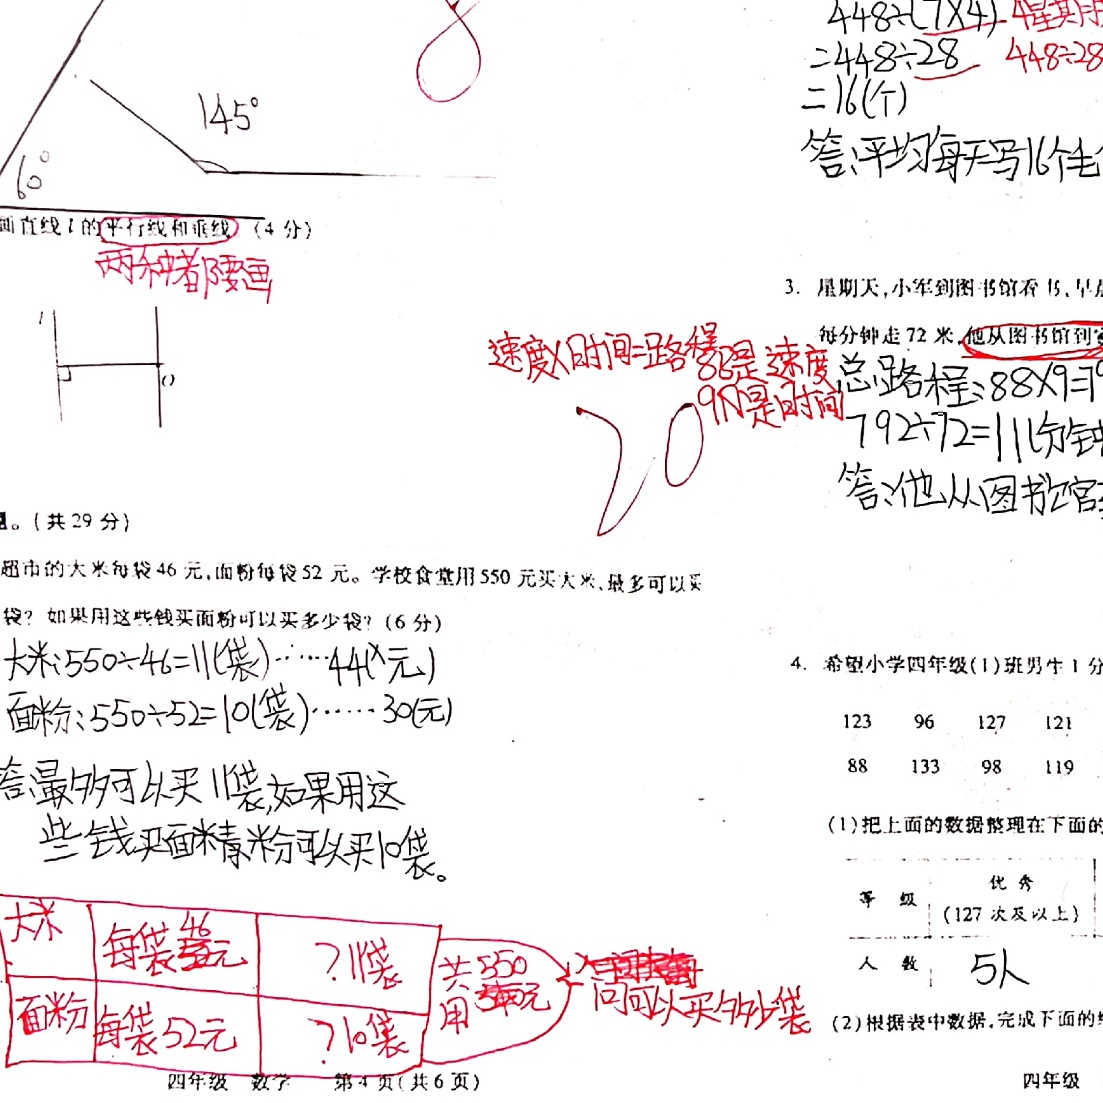 145°
60°
画直线l的平行线和垂线(4分)
两种都要画
题。(共29分)
超市的大米每袋46元,面粉每袋52元。学校食堂用550元买大米,最多可以买
袋?如果用这些钱买面粉可以买多少袋?(6分)
大米:550÷46=11(袋)……44(元)
面粉:550÷52=10(袋)……30(元)
答:最多可以买11袋,如果用这
些钱买面粉可以买10袋。
大米 每袋46元 ?11袋
面粉 每袋52元 ?10袋
共550
用元
问可以买多少袋
四年级 数学 第4页(共6页)
448÷(7×4) 4星期
=448÷28 448÷28
=16(个)
答:平均每天写16个毛
3. 星期天,小军到图书馆看书,早
每分钟走72米,他从图书馆到
速度×时间=路程
88是速度
9是时间
总路程:88×9=79
792÷72=11(分钟
答:他从图书馆
20
4. 希望小学四年级(1)班男生1分
123 96 127 121
88 133 98 119
(1)把上面的数据整理在下面的
等级 优秀
(127次及以上)
人数 5人
(2)根据表中数据,完成下面的
四年级